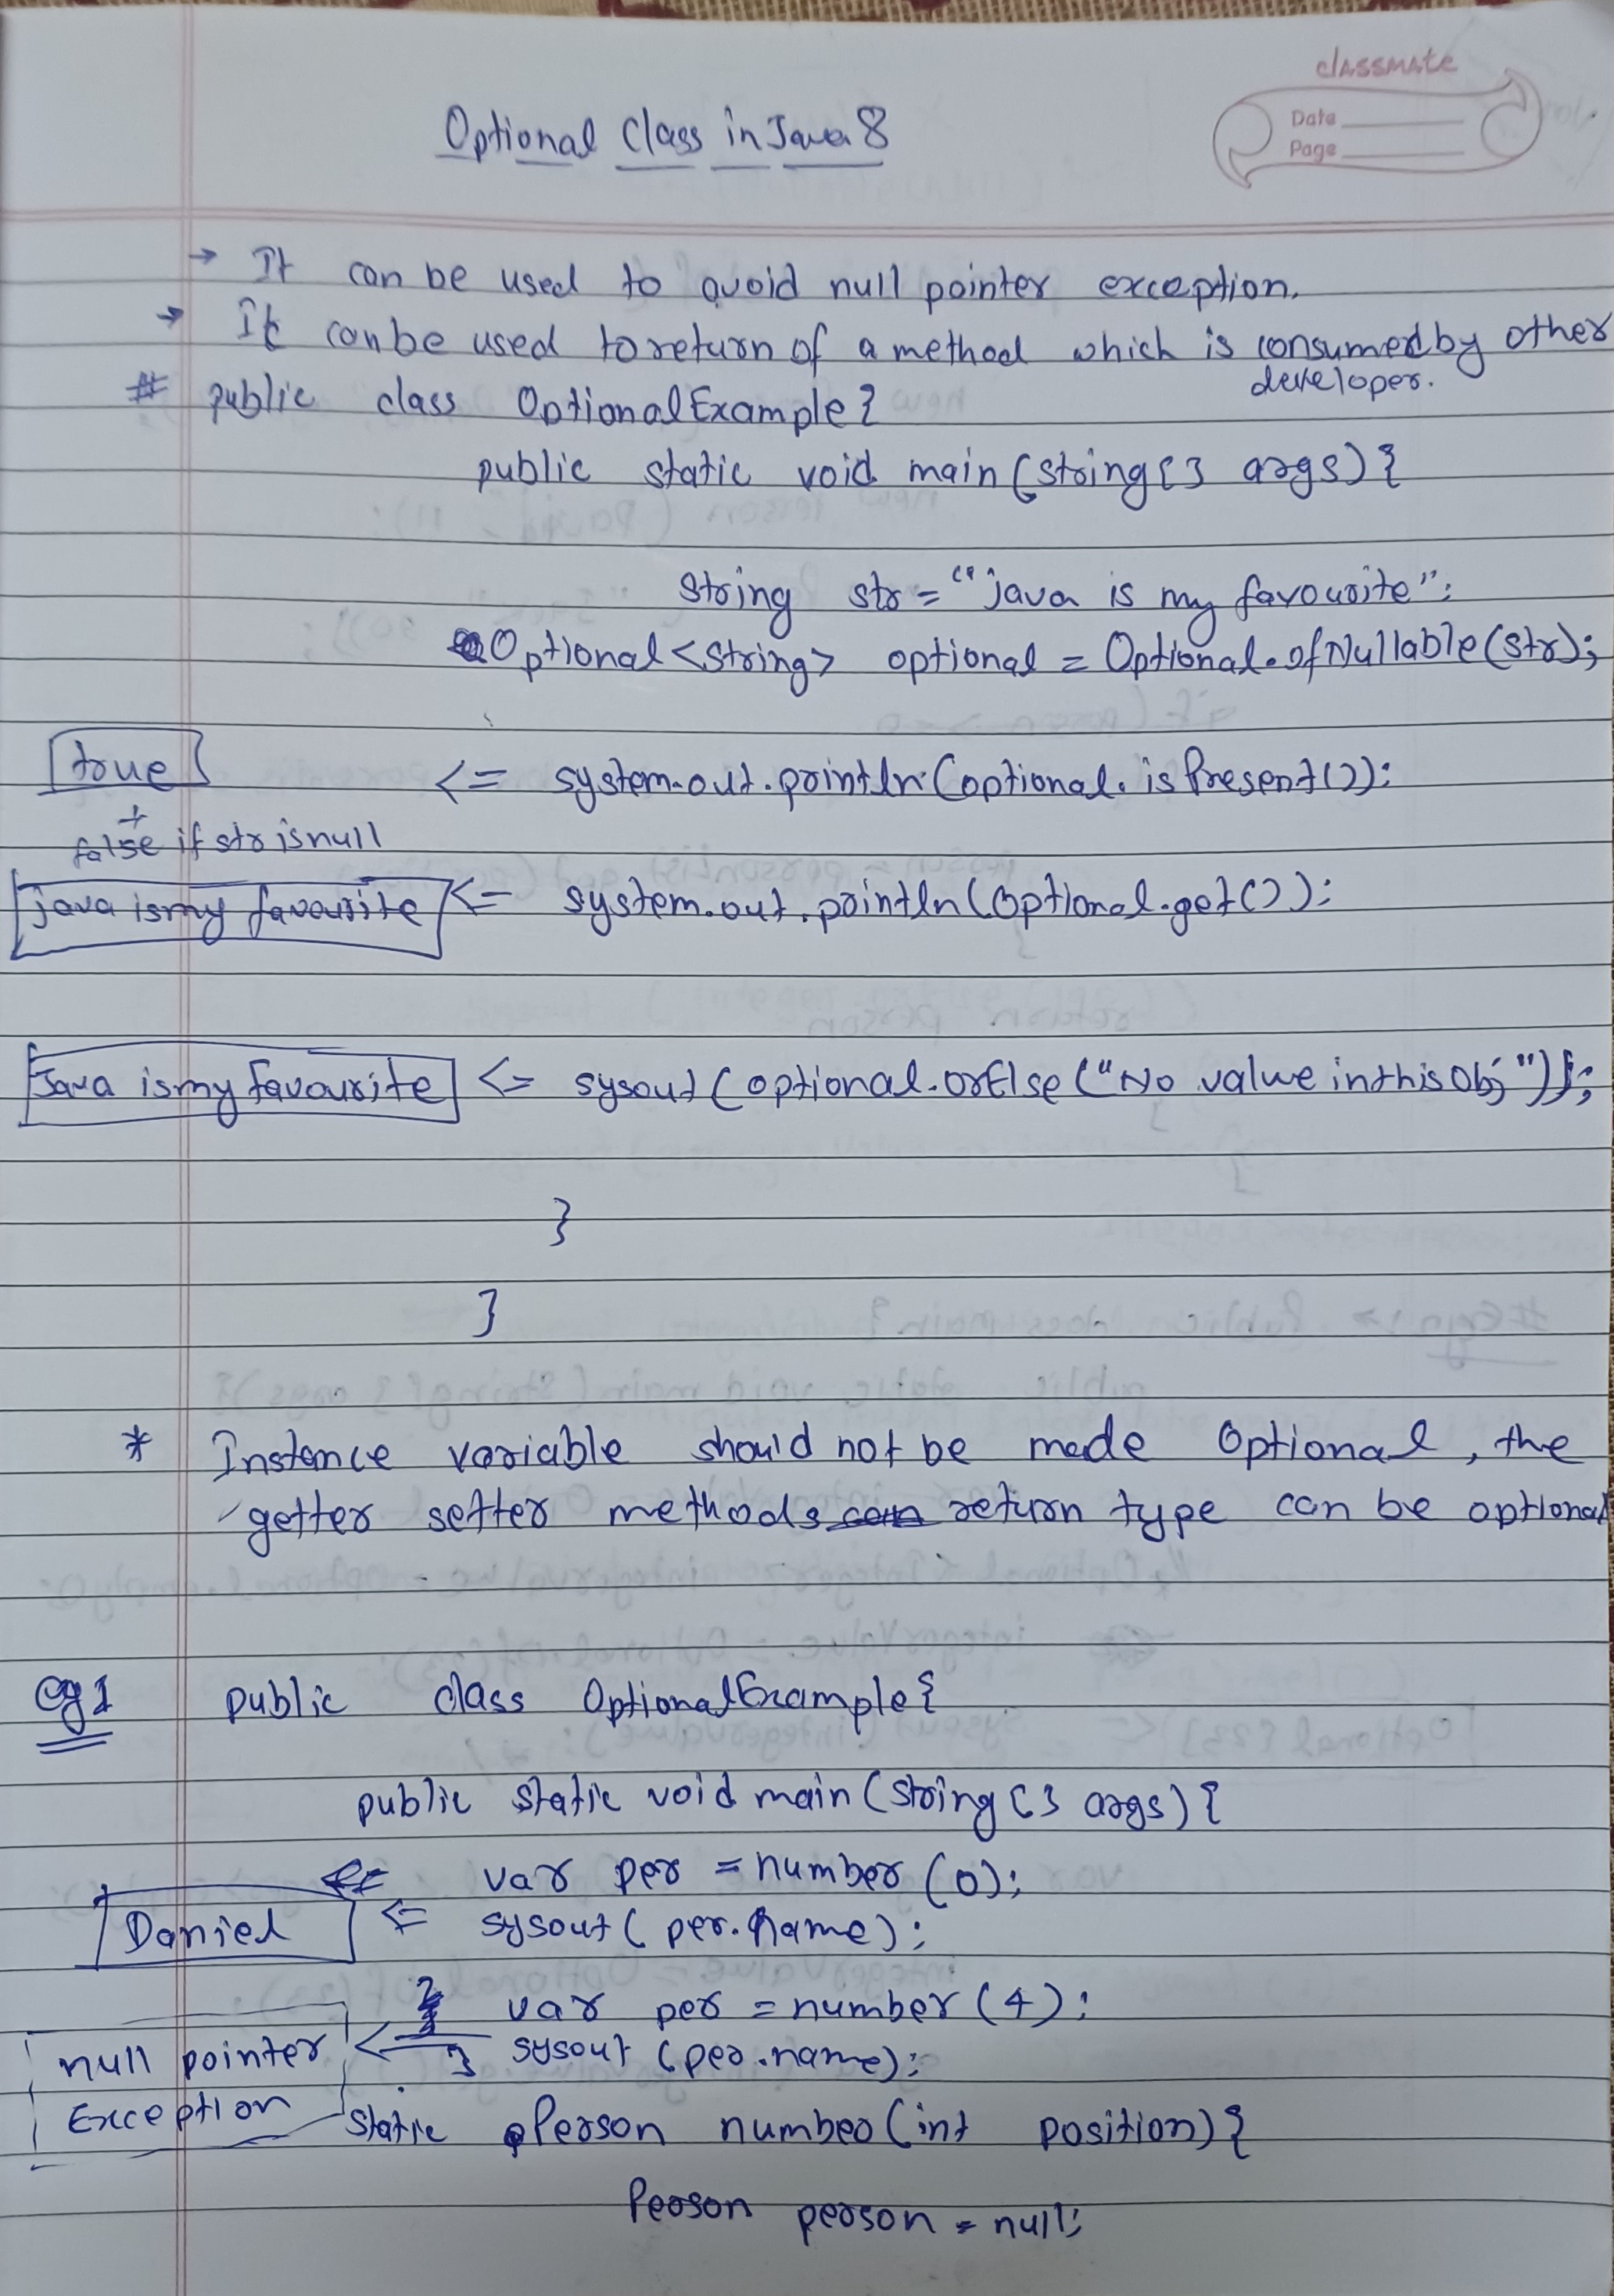 classmate
Date
Page
Optional Class in Java 8
→ It can be used to avoid null pointer exception.
→ It can be used to return of a method which is consumed by other
developer.
# public class OptionalExample {
public static void main (String [] args) {
String str = "java is my favourite";
Optional <String> optional = Optional.ofNullable(str);
true <= system.out.println(optional.isPresent());
false if str is null
java is my favourite <= system.out.println(optional.get());
Java is my favourite <= sysout (optional.orElse ("No value in this Obj"));
}
}
* Instance variable should not be made Optional, the
getter setter methods return type can be optional
eg 1 public class OptionalExample {
public static void main (String [] args) {
var per = number (0);
Daniel <= sysout ( per.name);
var per = number (4);
null pointer <= } sysout (per.name);
Exception static Person number (int position) {
Person person = null;